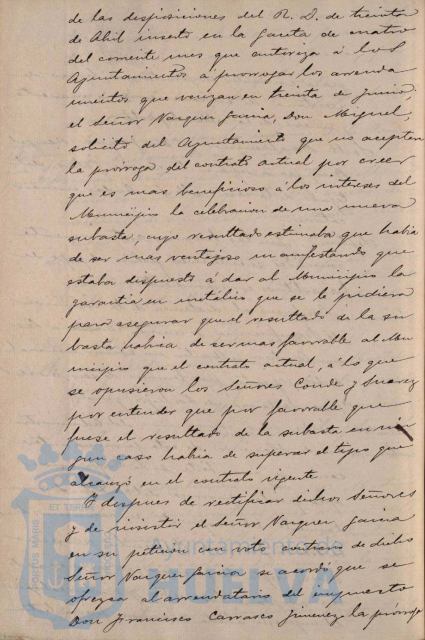 de las disposiciones del R. D. de treinta
de Abril inserto en la Gaceta de cuatro
del corriente mes que autoriza á los
Ayuntamientos á prorrogar los arrenda
mientos que venzan en treinta de Junio,
el Señor Vazquez Garcia, Don Miguel,
solicitó del Ayuntamiento que no acepten
la prórroga del contrato actual por creer
que es mas beneficioso á los intereses del
Municipio la celebracion de una nueva
subasta, cuyo resultado estimaba que habia
de ser mas ventajoso manifestando que
estaba dispuesto á dar al Municipio la
garantia en metálico que se le pidiera
para asegurar que el resultado de la su
basta habia de ser mas favorable al Mu
nicipio que el contrato actual, á lo que
se opusieron los Señores Conde y Suarez
por entender que por favorable que
fuese el resultado de la subasta en nin
gun caso habia de superar el tipo que
alcanzó en el contrato vigente
Y despues de rectificar dichos Señores
y de insistir el Señor Vazquez Garcia
en su peticion con voto contrario de dicho
Señor Vazquez Garcia se acordó que se
ofrezca al arrendatario del impuesto
Don Francisco Carrasco Jimenez la prórroga
Ayuntamiento de
HUELVA